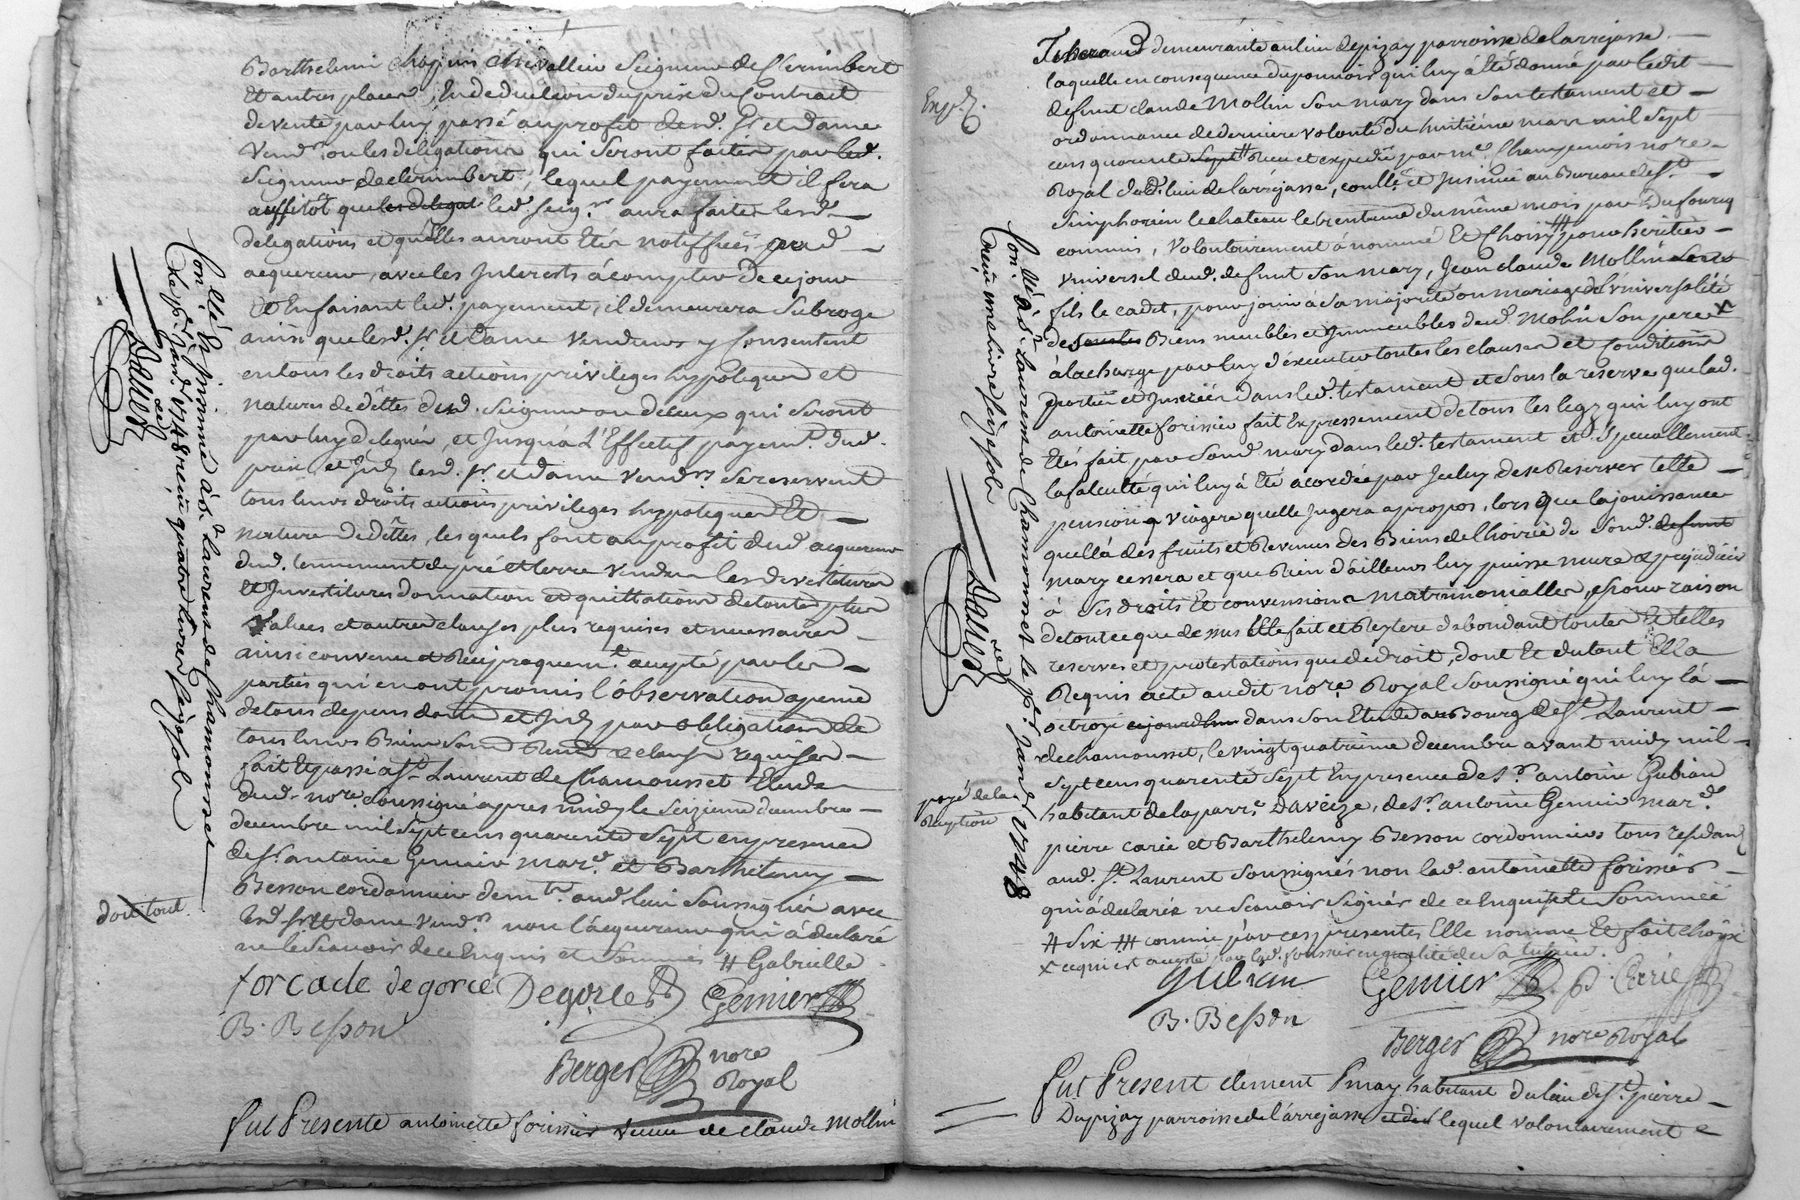 Barthelemi chevallier Seigneur de Clerimbert
Et autres places, En deduction du prix du Contrait
de vente par luy passé au profit desd. Sr et dame
Vendrs. ou les delegations qui seront faites par led.
Seigneur de clerimbert, lequel payement il fera
aussitôt que led. seigr. aura faites lesd.
delegations et quelles auront Etés notiffiées aud
acquereur, avec les Interests à compter de ce jour
Et En faisant led. payement, il demeurera Subrogé
ainsi que lesd. Sr et Dame Vendeurs y Consentent
en tous les droits actions privileges hypoteques et
natures de dettes dud. Seigneur ou de ceux qui seront
par luy delegués, et Jusqu'à L'Effectif payemt. dud.
prix et Lesd. Sr et dame Vendrs se reservent
tous leurs droits actions privileges hypoteques Et
nature de dettes, lesquels font au profit dud acquereur
dud. tennement de pré et terre vendu les devestitures
et Investitures donnation et quittation de toutes plus
Values et autres clauses plus requises et necessaires
ainsi convenu et Reciproquemt. accepté par les
parties qui en ont promis l'observation a peine
de tous depens dom. et par obligation de
tous leurs Biens et clauses requises
fait Et passé à St Laurent de Chamousset Etude
dud. nore. soussigné apres midy le seizieme
decembre mil sept cens quarente sept en presence
de Sr antoine Gemier mard. et Barthelemy
Besson cordonnier demts. aud. lieu soussignés avec
lesd. Sr et dame Vendrs non l'acquereur qui à declaré
ne le scavoir de ce Enquis et sommés # Gabrielle
forcade de gorce Degorce Gemier
B. Besson
Berger nore
Royal
fut Presente antoinette forissier veuve de claude Mollin
Conllé Et Insinué à St Laurent de Chamousset
le pr. Janv. 1748 reçu quatre livres seize sols
Dauer
doit tout
demeurante au lieu de pizay parroisse de larrejasse
laquelle en consequence du pouvoir qui luy à Eté donné par ledit
defunt claude Mollin son mary dans son testament et
ordonnance de derniere volonté du huitiéme mars mil sept
cens quarente sept Receu et expedié par me. Champenois nore
Royal dud. lieu de larréjasse, conllé et Insinué au Bureau de St
Simphorien le chateau le trentieme du même mois par Dufourcq
commis, volontairement à nommé Et Choisy pour heritier
universel dud. defunt son mary, Jean claude Mollin
fils le cadet, pour jouir à sa majorité ou mariage de l'universalité
de Biens meubles et Immeubles dud. Molin son pere x
à la charge par luy d'executer toutes les clauses et conditions
portées et Inserées dans led. testament et sous la reserve que lad.
antoinette forissier fait Expressement de tous les legz qui luy ont
Etés fait par sond. mary dans led. testament et spécialement
la faculté qui luy à Eté acordée par Jceluy de se Reserver telle
pension Viagere quelle jugera apropos, lors que la jouissance
quell'à des fruits et Revenus des Biens de l'hoirie de sond. defunt
mary cessera et que Rien d'ailleurs luy puisse nuire et prejudicier
à ses droits Et conventions matrimonialles, Et pour raison
de tout ce que dessus Elle fait et Reytere d'abondant toutes Et telles
reserves et protestations que de droit, dont Et du tout Ella
Requis acte audit nore. Royal soussigné qui luy l'à
octroyé dans son Etude au Bourg de St. Laurent
de chamousset, le vingt quatrieme decembre avant midy mil
sept cens quarente sept En presence de Sr antoine Gubian
habitant de la parre. Daveize, de Sr antoine Gemier mard.
pierre carie et Barthelemy Besson cordonniers tous residans
aud. St. Laurent soussignés non lad. antoinette forissier
qui à declarée ne scavoir signer de ce Enquise Et Sommeé
# six ## comme par ces presentes Elle nomme Et fait choix
x ce qui est accepté par lad. forissier en qualité de sa tutrice.
gubian Gemier P. Carié
B. Besson
Berger nore Royal
fut Present clément Pmay habitant du lieu de St. pierre
Dupizay parroisse de l'arrejasse lequel volontairement
Expd.
Conllé à St Laurent de Chamousset le pr. Janvr 1748
reçu une livre seize sols
Dauer
payé de la
Reception